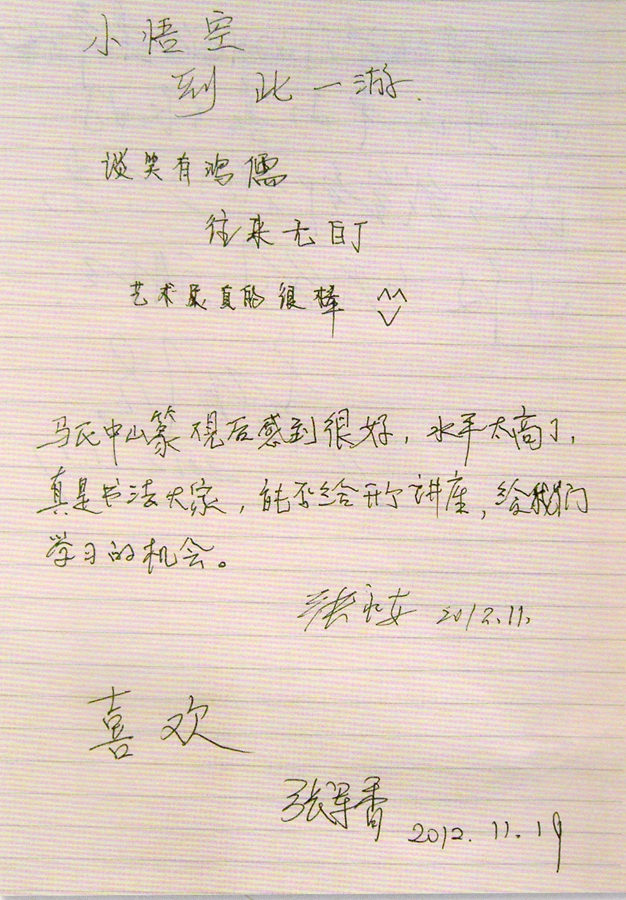 小悟空
到此一游.
谈笑有鸿儒
往来无白丁
艺术展真的很棒 ^^
马氏中山篆观后感到很好，水平太高了，
真是书法大家，能不给开个讲座，给我们
学习的机会。
张永安 2012.11.
喜欢
张军香 2012.11.19